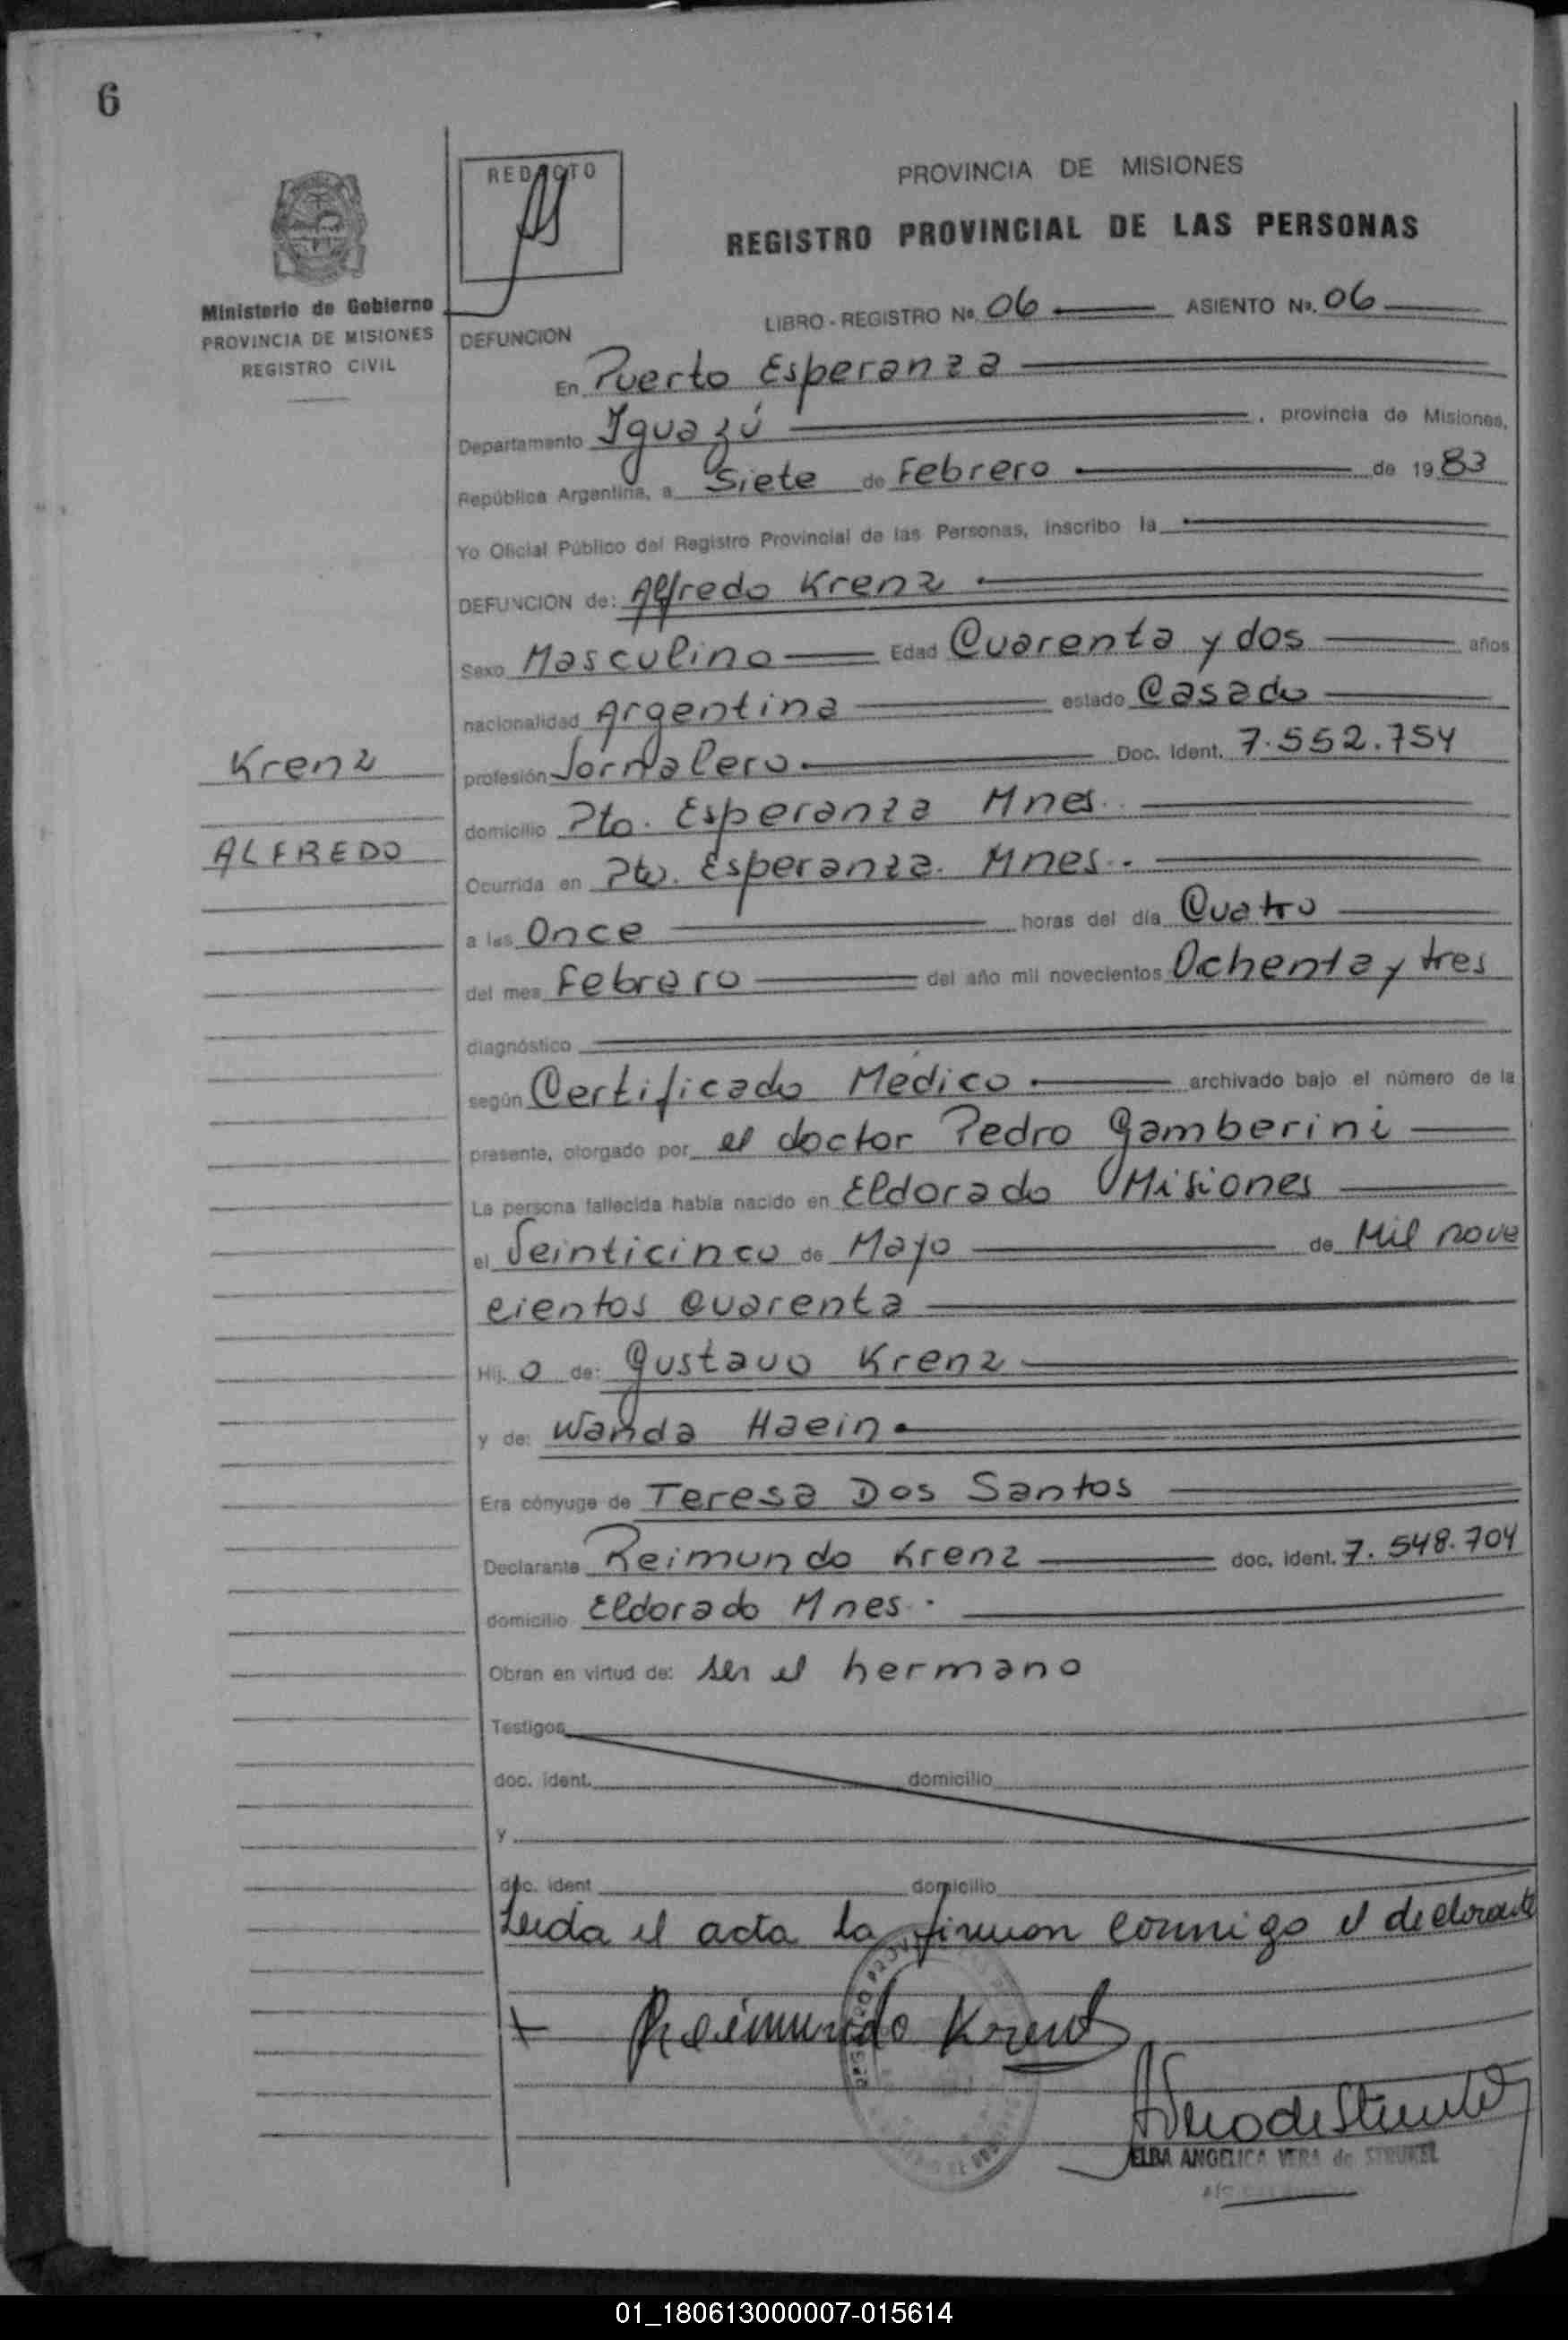 6
REDACTO
PROVINCIA DE MISIONES
REGISTRO PROVINCIAL DE LAS PERSONAS
Ministerio de Gobierno
PROVINCIA DE MISIONES
REGISTRO CIVIL
LIBRO - REGISTRO Nº 06 ASIENTO Nº. 06
DEFUNCION
En Puerto Esperanza
Departamento Iguazú, provincia de Misiones,
República Argentina, a Siete de Febrero de 1983
Yo Oficial Público del Registro Provincial de las Personas, inscribo la
DEFUNCION de: Alfredo Krenz
Sexo Masculino Edad Cuarenta y dos años
nacionalidad Argentina estado Casado
Krenz
profesión Jornalero Doc. Ident. 7.552.754
domicilio Pto. Esperanza Mnes.
ALFREDO
Ocurrida en Pto. Esperanza. Mnes.
a las Once horas del día Cuatro
del mes Febrero del año mil novecientos Ochenta y tres
diagnóstico
según Certificado Médico archivado bajo el número de la
presente, otorgado por el doctor Pedro Gamberini
La persona fallecida había nacido en Eldorado Misiones
el Veinticinco de Mayo de Mil nove
cientos cuarenta
Hij. o de: Gustavo Krenz
y de: Wanda Haein
Era cónyuge de Teresa Dos Santos
Declarante Reimundo Krenz doc. ident. 7.548.704
domicilio Eldorado Mnes.
Obran en virtud de: ser el hermano
Testigos
doc. ident. domicilio
y
doc. ident domicilio
Leida el acta la firman conmigo el declarante
Reimundo Krenz
ELBA ANGELICA VERA de STRUKEL
01_180613000007-015614